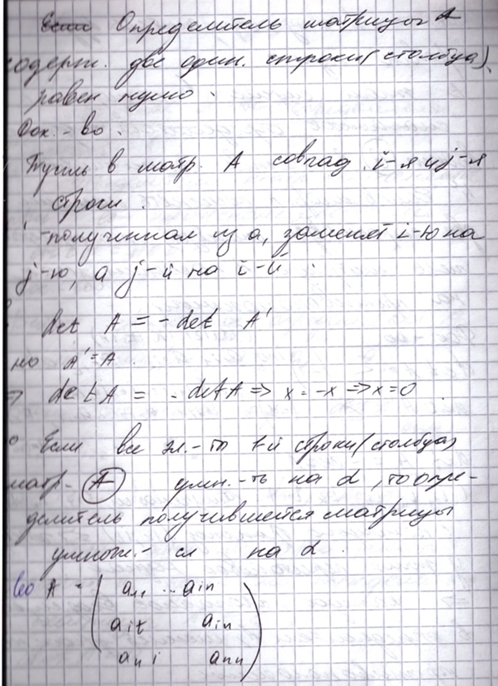 Определитель матрицы A
содерж. две один. строки (столбца)
равен нулю.
Док.-во.
Пусть в матр. A совпад. i-я и j-я
строки.
-полученная из а, заменят i-ю на
j-ю, а j-й на i-й.
det A = -det A'
но A'=A
=> det A = -det A => x = -x => x=0.
Если все эл.-ты t-й строки (столбца)
матр. A умн.-ть на α, то опре-
делитель получившейся матрицы
умнож.-ся на α.
во A = ( a₁₁ ... a₁n
aᵢt aᵢn
aₙ i aₙn )